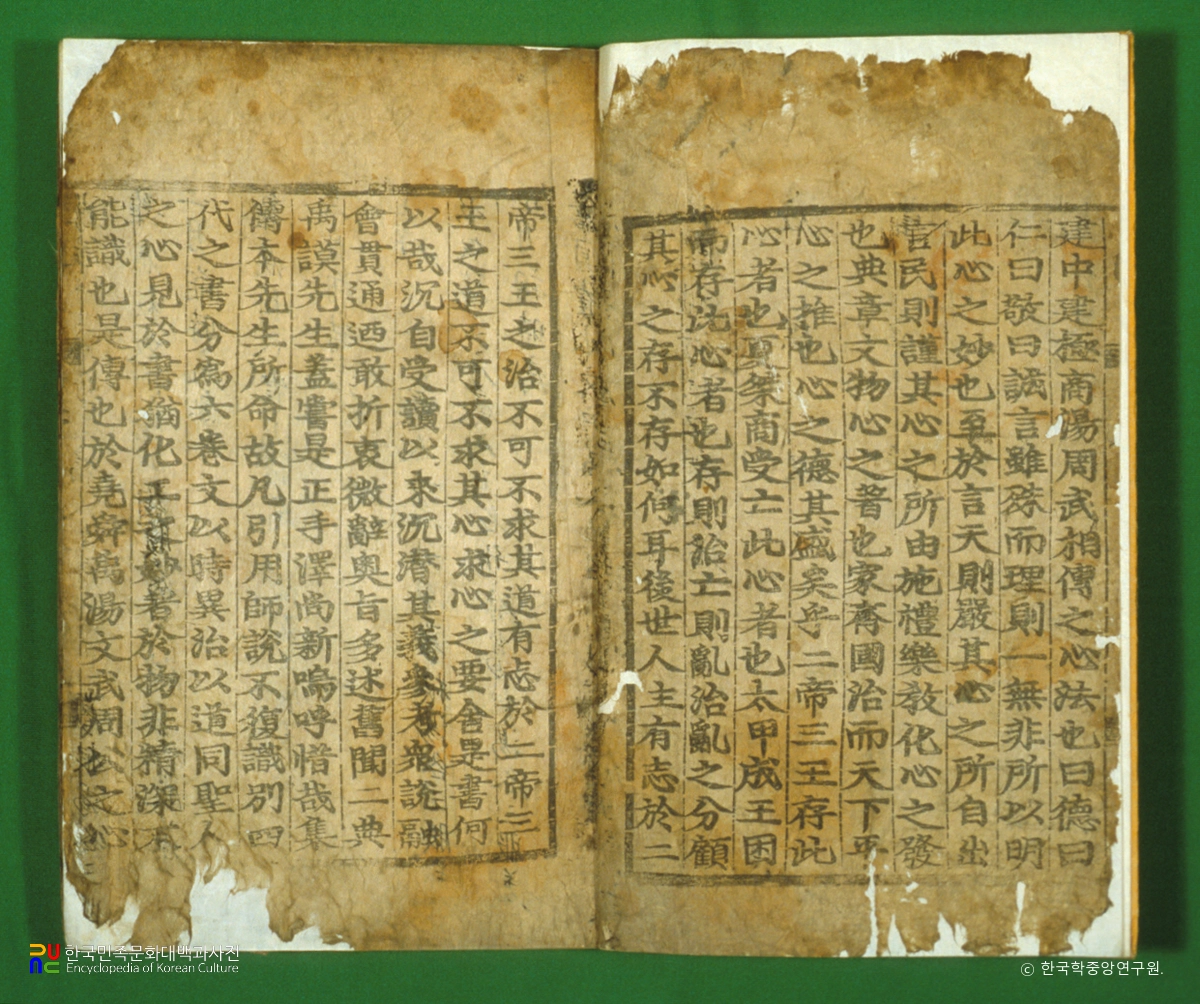 建中建極商湯周武相傳之心法也曰德曰
仁曰敬曰誠言雖殊而理則一無非所以明
此心之妙也至於言天則嚴其心之所自出
言民則謹其心之所由施禮樂敎化心之發
也典章文物心之著也家齊國治而天下平
心之推也心之德其盛矣乎二帝三王存此
心者也夏桀商受亡此心者也太甲成王困
而存此心者也存則治亡則亂治亂之分顧
其心之存不存如何耳後世人主有志於二
帝三王之治不可不求其道有志於二帝三
王之道不可不求其心求心之要舍是書何
以哉沉自受讀以來沉潛其義參考衆說融
會貫通迺敢折衷微辭奧旨多述舊聞二典
禹謨先生蓋嘗是正手澤尚新嗚呼惜哉集
傳本先生所命故凡引用師說不復識別四
代之書分爲六卷文以時異治以道同聖人
之心見於書猶化工之妙著於物非精深不
能識也是傳也於堯舜禹湯文武周公之心
한국민족문화대백과사전
Encyclopedia of Korean Culture
© 한국학중앙연구원.